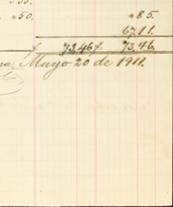 50. 85.
67.11.
73.46 73.46
Mayo 20 de 1911.